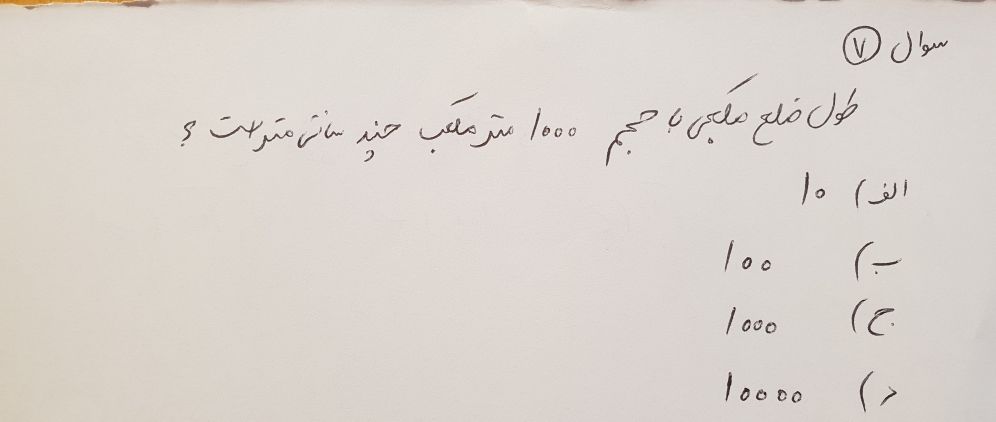 سوال ۷
طول ضلع مکعبی با حجم ۱۰۰۰ متر مکعب چند سانتی متر است ؟
الف) ۱۰
ب) ۱۰۰
ج) ۱۰۰۰
د) ۱۰۰۰۰